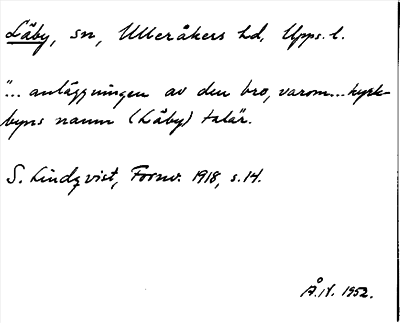 Låby, sn, Ulleråkers hd, Upps. l.
"... anläggningen av den bro, varom... kyrk-
byns namn (Låby) talar.
S. Lindqvist, Fornv. 1918, s. 14.
Å. N. 1952.